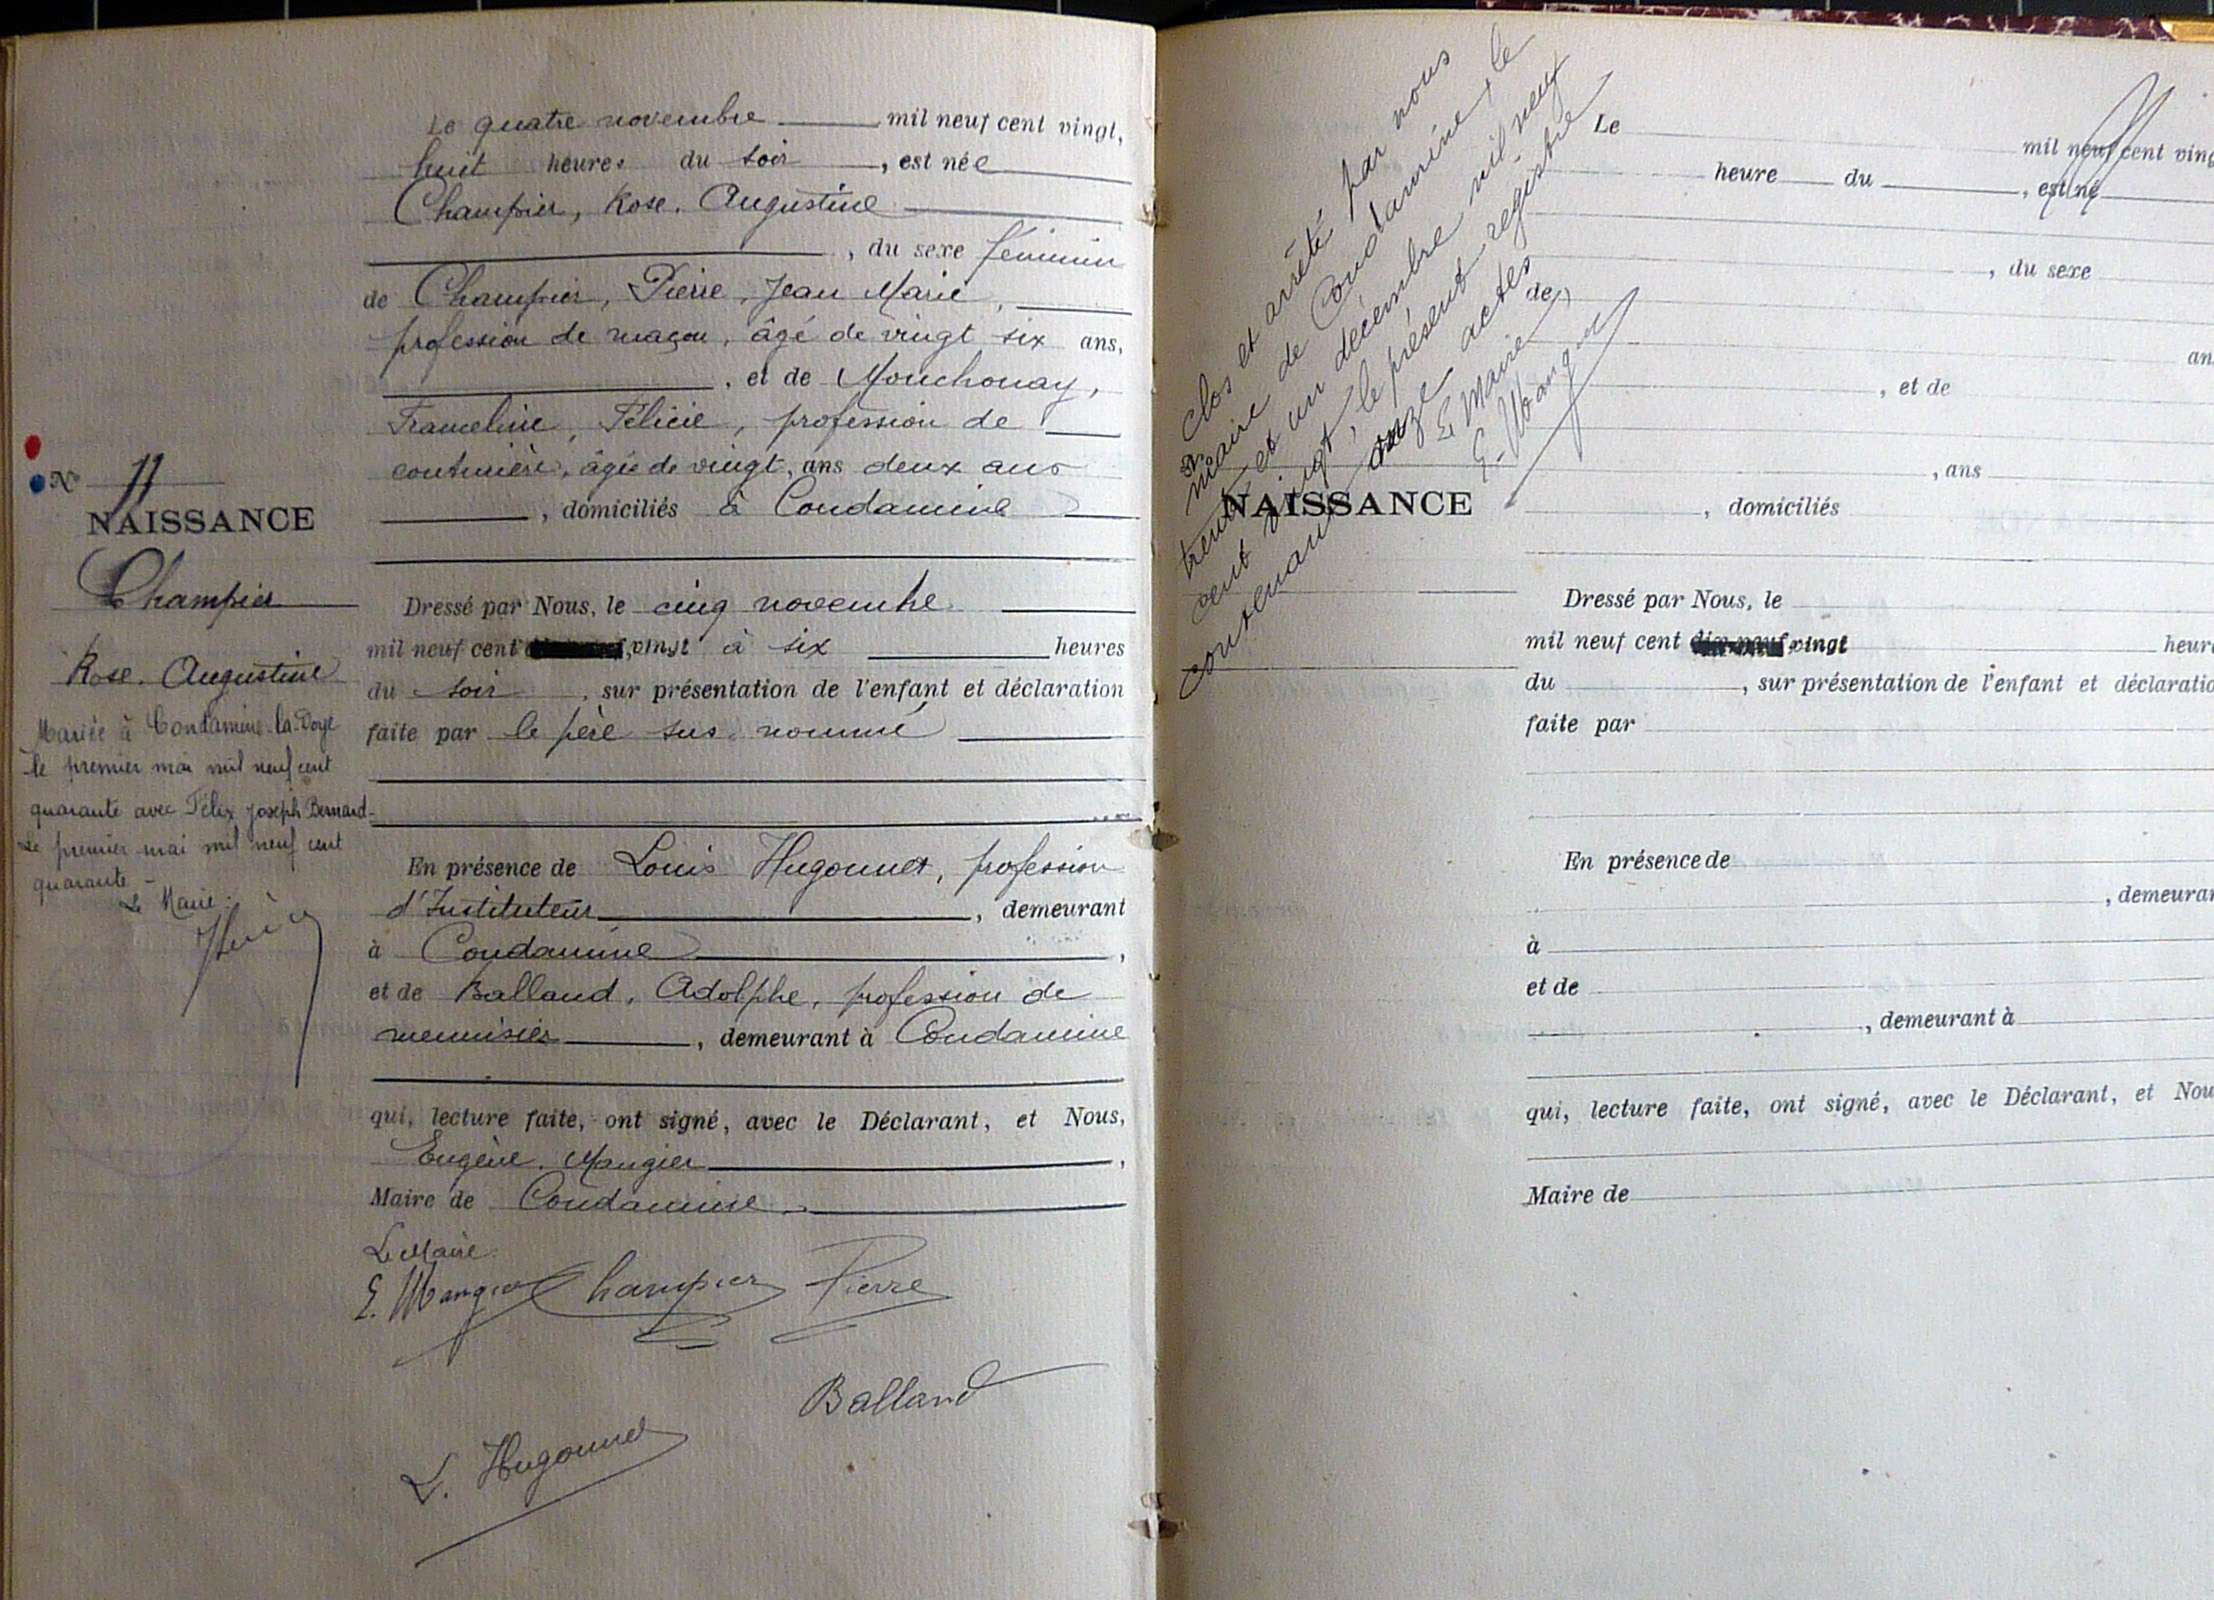 Le quatre novembre mil neuf cent vingt,
huit heures du soir, est née
Champier, Rose. Augustine
, du sexe féminin
de Champier, Pierre, Jean Marie,
profession de maçon, âgé de vingt six ans,
, et de Mouchonay,
Franceline, Félicie, profession de
couturière, âgée de vingt, ans deux ans
, domiciliés à Condamine
Dressé par Nous, le cinq novembre
mil neuf cent vingt à six heures
du soir, sur présentation de l'enfant et déclaration
faite par le père sus-nommé
En présence de Louis Hugonnet, profession
d'Instituteur, demeurant
à Condamine,
et de Balland, Adolphe, profession de
menuisier, demeurant à Condamine
qui, lecture faite, ont signé, avec le Déclarant, et Nous,
Eugène. Mangier,
Maire de Condamine
Le Maire
E. Mangier Champier Pierre
Balland
L. Hugonnet
No 11
NAISSANCE
Champier
Rose. Augustine
Mariée à Condamine-la-Doye
le premier mai mil neuf cent
quarante avec Félix Joseph Bernard-
Le premier mai mil neuf cent
quarante -
Le Maire:
Clos et arrêté par nous
maire de Condamine, le
trente et un décembre mil neuf
cent vingt, le présent registre
contenant onze actes
Le Maire,
E. Mangier
NAISSANCE
Le mil neuf cent ving
heure du , est né
, du sexe
de
an
, et de
, ans
, domiciliés
Dressé par Nous, le
mil neuf cent vingt heure
du , sur présentation de l'enfant et déclaratio
faite par
En présence de
, demeuran
à
et de
, demeurant à
qui, lecture faite, ont signé, avec le Déclarant, et Nou
Maire de